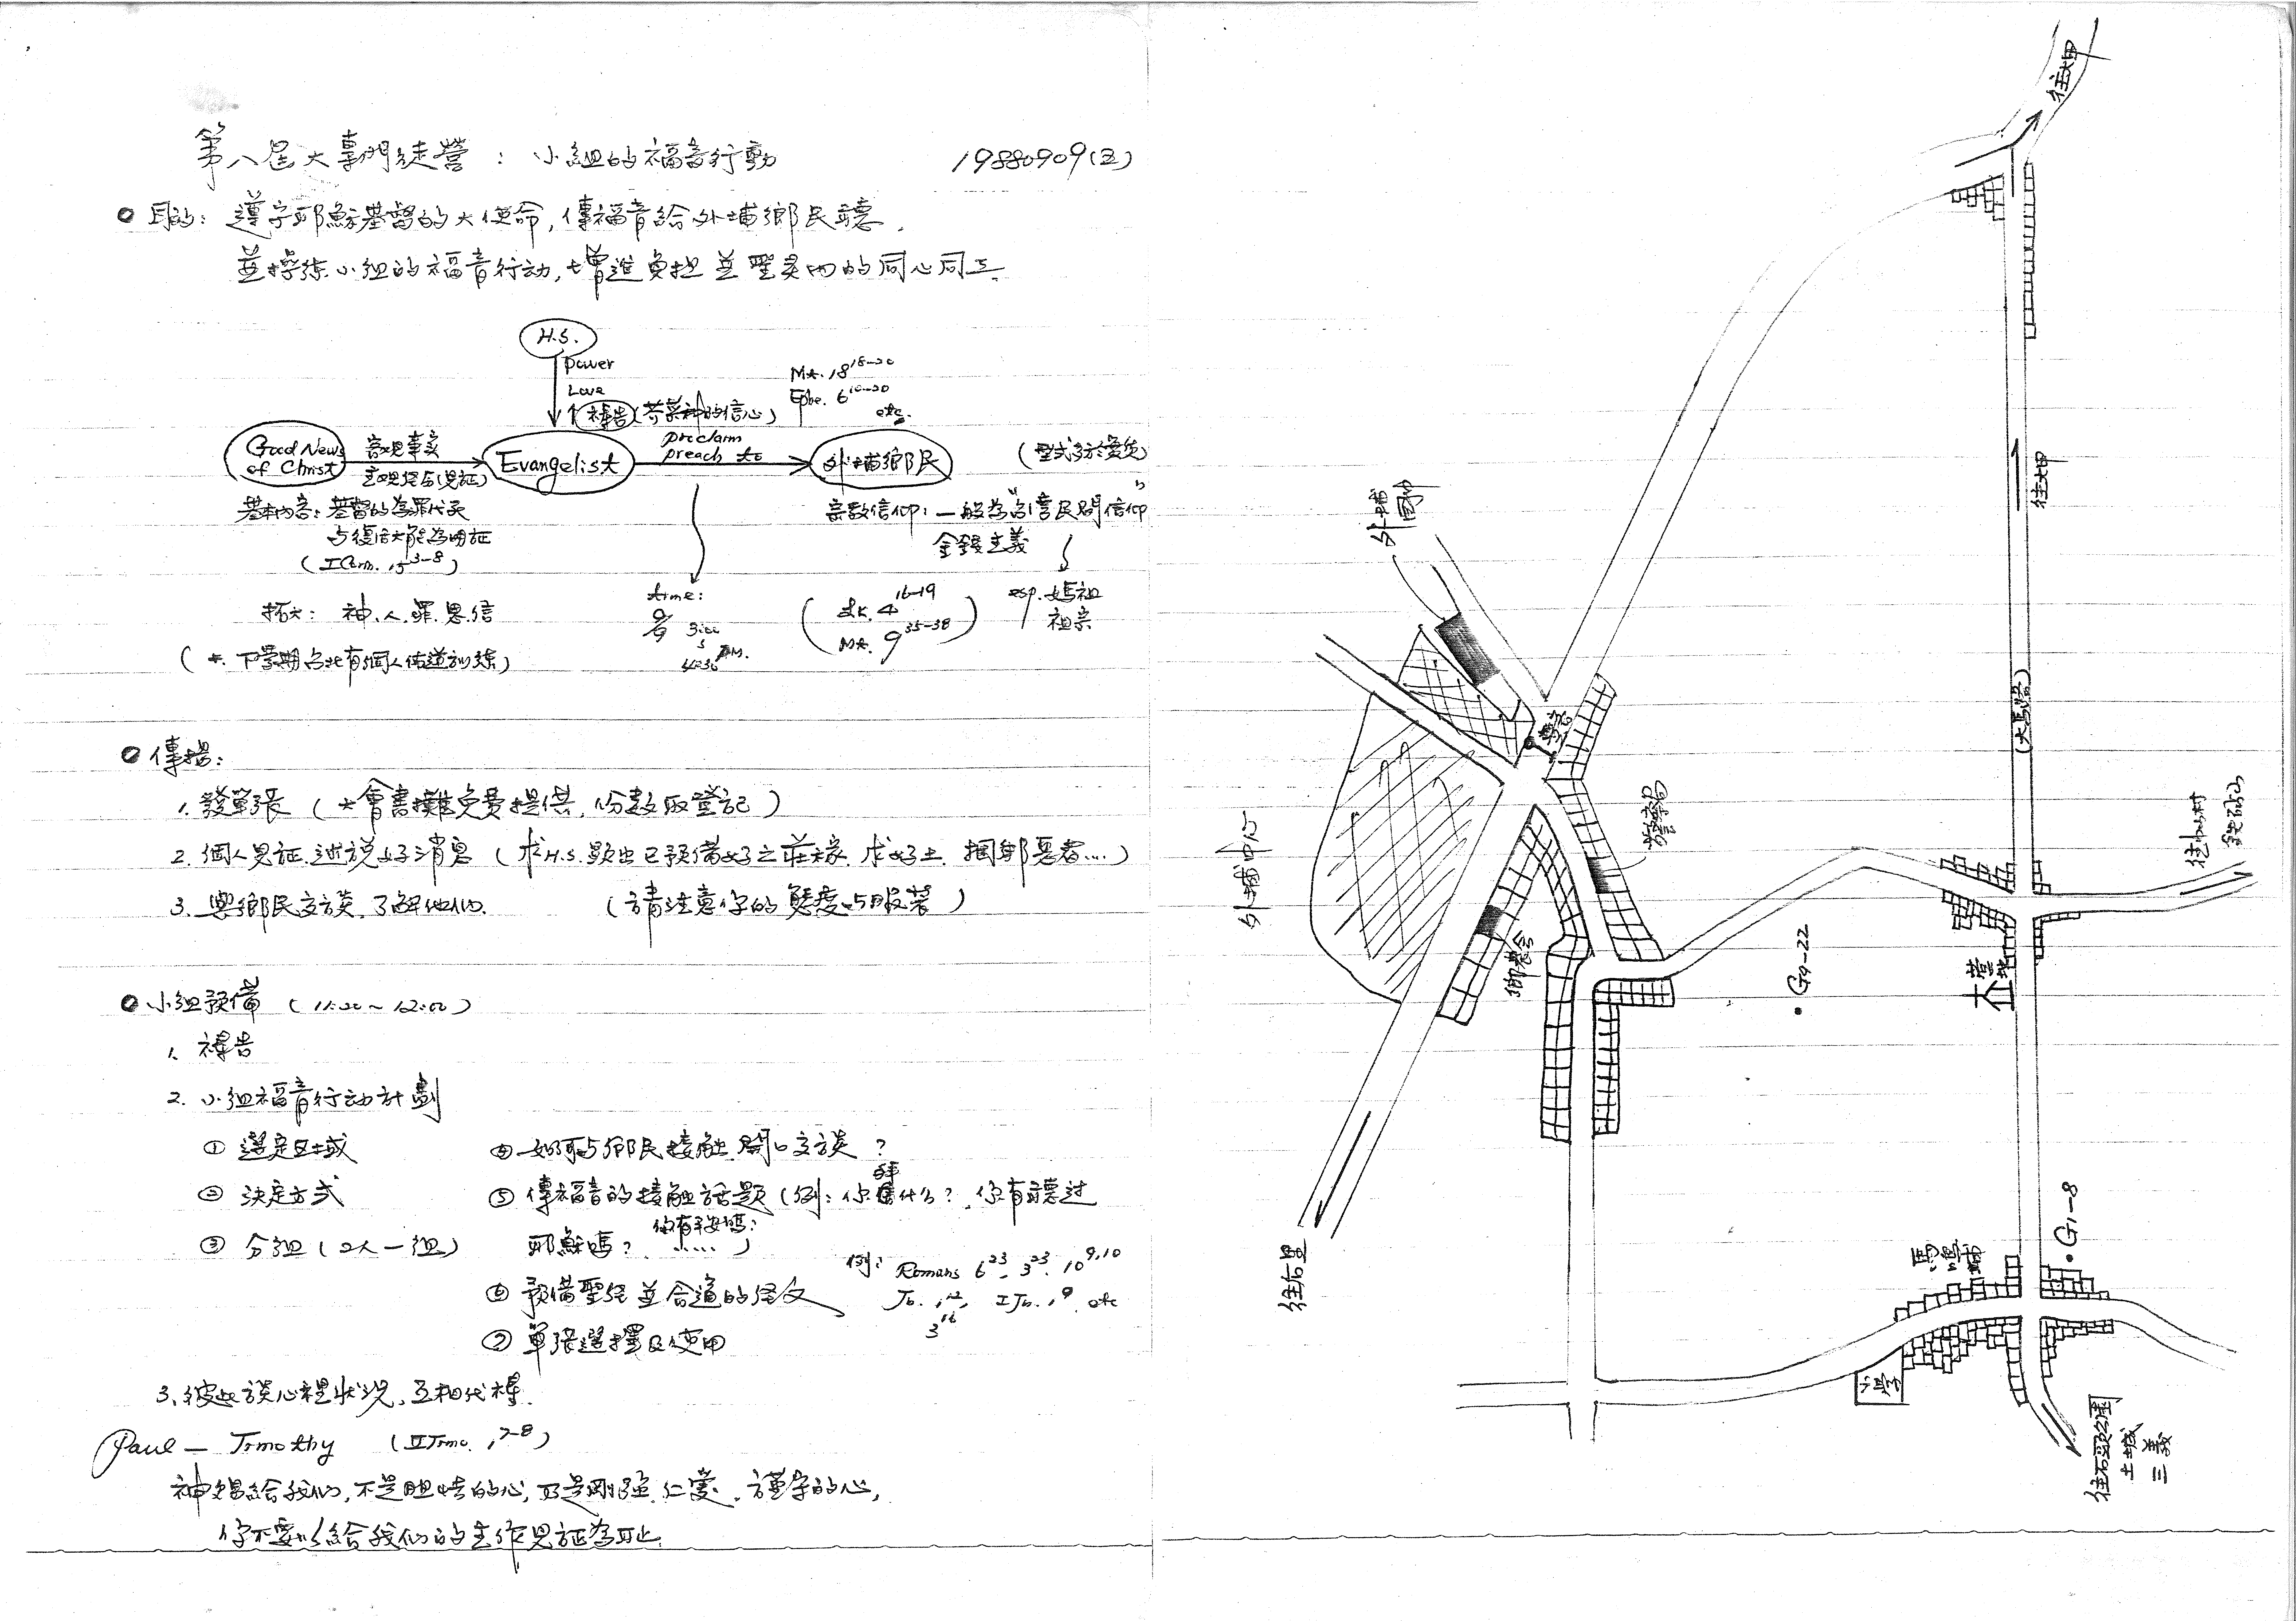 第八屆大專門徒營：小組的福音行動 19880909(五)
目的：遵守耶穌基督的大使命，傳福音給外埔鄉民聽，
並操练小組的福音行动，增進負担並聖灵內的同心同工
H.S.
power
Love
禱告(芥菜种的信心)
Mt. 18 18-20
Ephe. 6 10-20
etc.
Good News of Christ
客观事实
主观经历(見証)
Evangelist
proclaim
preach to
外埔鄉民
基本內容：基督的為罪代死
与復活大能為明証
(I Corin. 15 3-8)
宗教信仰：一般為
民間信仰
金錢主義
esp. 媽祖
祖宗
拓大：神.人.罪.恩.信
time:
3:00
4:30 P.M.
(Lk. 4 16-19
Mt. 9 35-38)
(*. 下學期台北有個人佈道訓練)
傳揚：
1. 發單張 (大會書攤免費提供，份數取登記)
2. 個人見証.述說好消息 (求H.S.顯出已預備好之莊稼.求好土.捆邦惡者...)
3. 與鄉民交談.了解他们. (請注意你的態度与服裝)
小組預備 (11:20~12:00)
1. 禱告
2. 小組福音行动計劃
① 選定区域
② 決定方式
③ 分組 (2人一組)
④ 如何与鄉民接触.開口交談？
⑤ 傳福音的接触話題 (例：你拜什么？.你有聽過
耶穌嗎？ 你有平安嗎？.....)
⑥ 預備聖經並合適的経文
例：Romans 6 23. 3 23. 10 9,10
Jo. 1 12, 3 16 I Jo. 1 9. etc
⑦ 單張選擇及使用
3. 彼此談心裡狀況，互相代禱.
Paul — Timothy (II Timo. 1 7-8)
神賜給我们，不是胆怯的心，乃是剛強.仁愛.謹守的心，
你不要以給我们的主作見証為耻.
往大甲
外埔國中
往大甲
(大馬路)
警察局
外埔中心
鄉農会
往水美村
鐵砧山
G9-22
G1-8
往后里
小学
往石頭公園
土城
三義